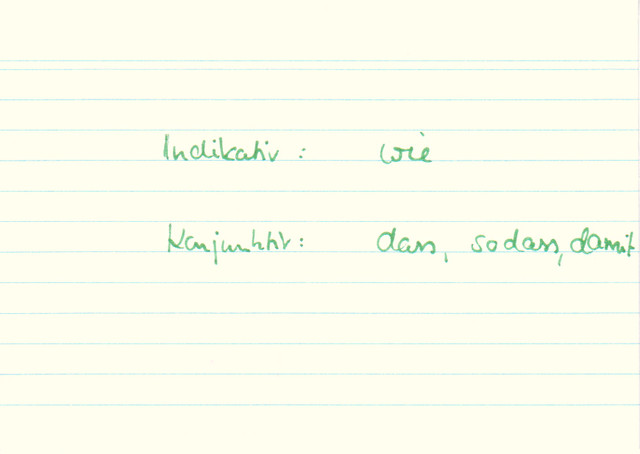 Indikativ: wie
Konjunktiv: dass, sodass, damit